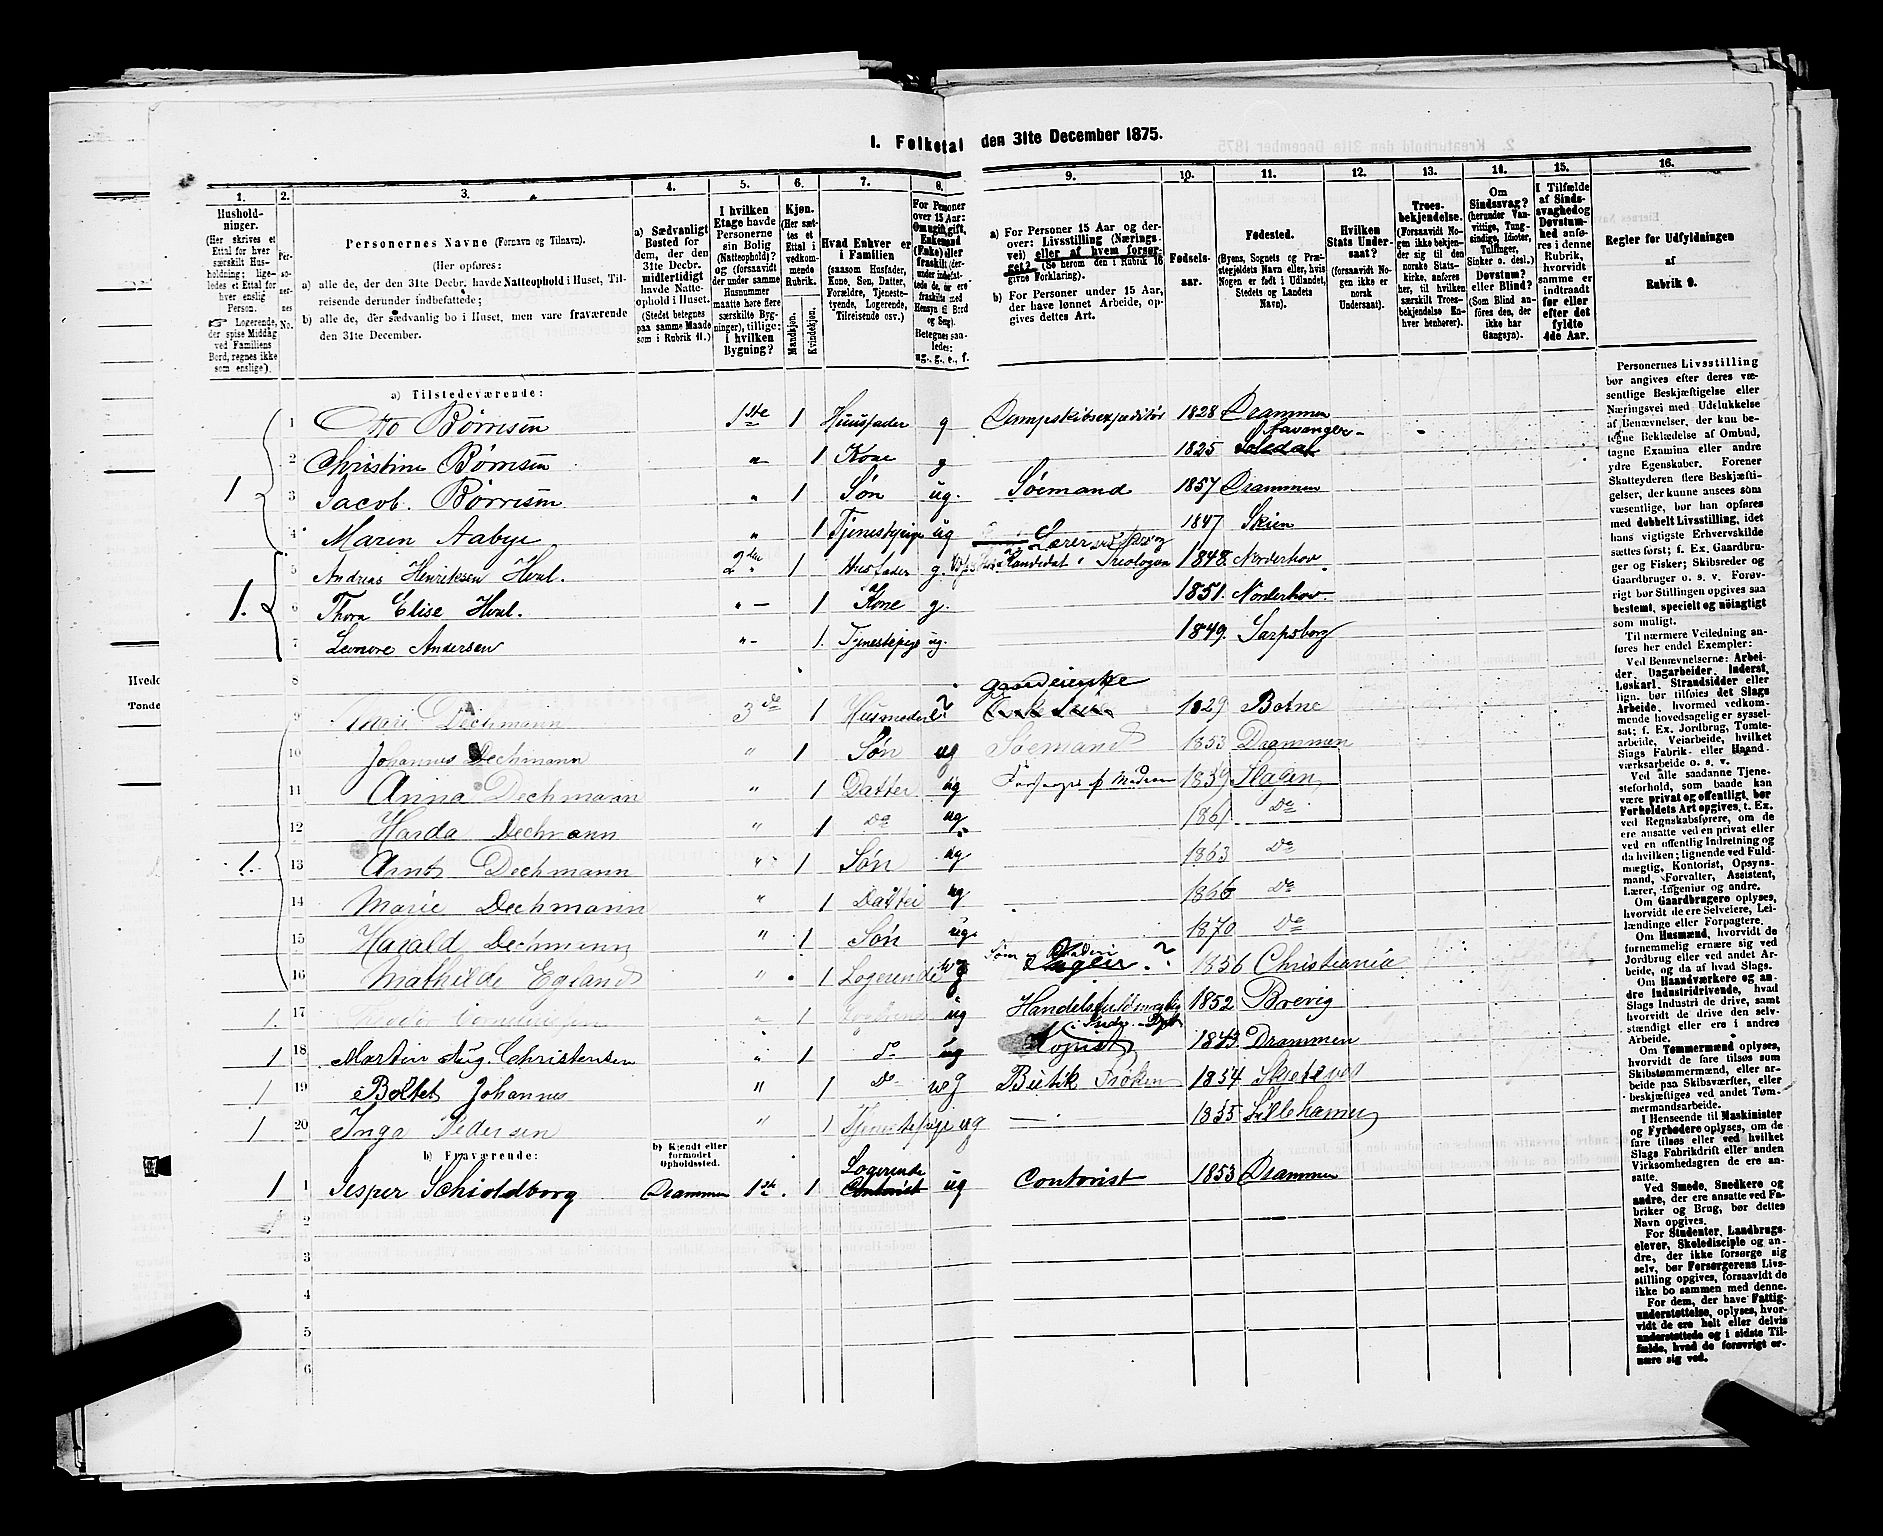 I. Folketal den 31te December 1875.
1. 2. 3. 4. 5. 6. 7. 8. 9. 10. 11. 12. 13. 14. 15. 16.
Husholdninger. (Her skrives et Ettal for hver særskilt Husholdning; ligeledes et Ettal for hver enslig Person. Logerende, der spise Middag ved Familiens Bord, regnes ikke som enslige).
Personernes No.
Personernes Navne (Fornavn og Tilnavn).
(Her opføres:
a) alle de, der den 31te Decbr. havde Natteophold i Huset, Tilreisende derunder indbefattede;
b) alle de, der sædvanlig bo i Huset, men vare fraværende den 31te December.
a) Sædvanligt Bosted for dem, der den 31te Decbr. midlertidigt havde Natteophold i Huset. (Stedet betegnes paa samme Maade som i Rubrik 11.)
I hvilken Etage havde Personerne sin Bolig (Natteophold)? og (forsaavidt der under samme Husnummer maatte høre flere særskilte Bygninger), tillige: i hvilken Bygning?
Kjøn. (Her sættes et Ettal i vedkommende Rubrik. Mandkjøn. Kvindekjøn.
Hvad Enhver er i Familien (saasom Husfader, Kone, Søn, Datter, Forældre, Tjenestetyende, Logerende, Tilreisende osv.)
For Personer over 15 Aar: Om ugift, gift, Enkemand (Enke) eller fraskilt
Betegnes saaledes: ug., g., e., f.
a) For Personer 15 Aar og derover: Livsstilling (Næringsvei) eller af hvem forsørget? (Se herom den i Rubrik 16 givne Forklaring).
b) For Personer under 15 Aar, der have lønnet Arbeide, opgives dettes Art.
Fødselsaar.
Fødested. (Byens, Sognets og Præstegjeldets Navn eller, hvis Nogen er født i Udlandet, Stedets og Landets Navn).
Hvilken Stats Undersaat? (forsaavidt Nogen ikke er norsk Undersaat).
Troesbekjendelse. (Forsaavidt Nogen ikke bekjender sig til den norske Statskirke, anføres her, til hvilken særskilt Troesbekjendelse Enhver henhører).
Om Sindssvag? (herunder Vanvittige, Tungsindige, Idioter, Tullinger, Sinker o. desl.) Døvstum? eller Blind? (Som Blind anføres den, der ikke har Gangsyn).
I Tilfælde af Sindssvaghed og Døvstumhed anføres i denne Rubrik, hvorvidt samme er indtraadt før eller efter det fyldte 4de Aar.
Regler for Udfyldningen af Rubrik 9.
a) Tilstedeværende:
1 Otto Børresen 1ste 1 Huusfader g Dampskibsexpeditør 1828 Drammen
2 Christine Børresen " 1 Kone g 1825 Stavanger
1 3 Jacob Børresen " 1 Søn ug. Sømand 1857 Drammen
4 Maren Aabye " 1 Tjenestpige ug 1847 Skien
5 Andreas Henriksen Hval. 2den 1 Husfader g. Lærer Kandidat 1848. Norderhov.
1. 6 Thora Elise Hval. " 1 Kone g. 1851. Norderhov.
7 Leonore Andersen " 1. Tjenestepige ug. 1849. Sarpsborg
8
9 Mari Dechmann 3de 1 Husmoder ? gaardeierske 1829 Botne
10 Johannes Dechmann " 1 Søn ug Sømand 1853 Drammen
11 Anna Dechmann " 1 Datter ug Forsørges af Moderen 1859 Slagen
12 Harda Dechmann " 1 Do ug. 1861 Do
1. 13 Dechmann " 1 Søn ug 1863 Do
14 Marie Dechmann " 1 Datter ug 1866 Do
15 Harald Dechmann " 1 Søn ug. 1870 Do
16 Mathilde Egeland " 1 Logerende ug ? 1856 Christiania
17 " 1 ug Handelsfuldmægtig 1852 Brevig
1 18 Martin Aug. Christensen " 1 Do ug Kopist 1843 Drammen
1 19 Johannes " 1 Do ug Butik Frøken 1854
1 20 Inga Pedersen " 1 Tjenestepige ug — 1855 Lillehamer
b) Fraværende:
b) Kjendt eller formodet Opholdssted.
1 1 Jesper Schioldborg Drammen 1ste 1 Logerende ug Contorist 1853 Drammen
2
3
4
5
6
Personernes Livsstilling bør angives efter deres væsentlige Beskjæftigelse eller Næringsvei med Udelukkelse af Benævnelser, der kun betegne Beklædelse af Ombud, tagne Examina eller andre ydre Egenskaber. Forener Skatteyderen flere Beskjæftigelser, der kunne ansees som væsentlige, bør han opføres med dobbelt Livsstilling, idet hans vigtigste Erhvervskilde sættes først; f. Ex. Gaardbruger og Fisker; Skibsreder og Gaardbruger o. s. v. Forøvrigt bør Stillingen opgives saa bestemt, specielt og nøiagtigt som muligt.
Til nærmere Veiledning anføres her endel Exempler:
Ved Benævnelserne: Arbeider, Dagarbeider, Inderst, Løskarl, Strandsidder eller lign. bør tilføies det Slags Arbeide, hvormed vedkommende hovedsagelig er sysselsat; f. Ex. Jordbrug, Tomtearbeide, Veiarbeide, hvilket Slags Fabrik- eller Haandværksarbeide o. s. v.
Ved alle saadanne Tjenesteforhold, som baade kan være privat og offentligt, bør Forholdets Art opgives, t. Ex. ved Regnskabsførere, om de ere ansatte ved en privat eller ved en offentlig Indretning og da hvilken; lignende ved Fuldmægtig, Kontorist, Opsynsmand, Forvalter, Assistent, Lærer, Ingeniør og andre.
Om Gaardbrugere oplyses, hvorvidt de ere Selveiere, Leilændinge eller Forpagtere.
Om Husmænd, hvorvidt de fornemmelig ernære sig ved Jordbrug eller ved andet Arbeide, og da af hvad Slags.
Om Haandværkere og andre Industridrivende, hvad Slags Industri de drive, samt hvorvidt de drive den selvstændigt eller ere i andres Arbeide.
Om Tømmermænd oplyses, hvorvidt de fare tilsøs som Skibstømmermænd, eller arbeide paa Skibsværfter, eller beskjæftiges ved andet Tømmermandsarbeide.
I Henseende til Maskinister og Fyrbødere oplyses, om de fare tilsøs eller ved hvilket Slags Fabrikdrift eller anden Virksomhed de ere ansatte.
Ved Smede, Snedkere og andre, der ere ansatte ved Fabriker og Brug, bør dettes Navn opgives.
For Studenter, Landbrugselever, Skoledisciple og andre, der ikke forsørge sig selv, bør Forsørgerens Livsstilling opgives, forsaavidt de ikke bo sammen med denne.
For dem, der have Fattigunderstøttelse, oplyses, hvorvidt de ere helt eller delvis understøttede og i sidste Tilfælde, hvad de forøvrigt ernære sig ved.